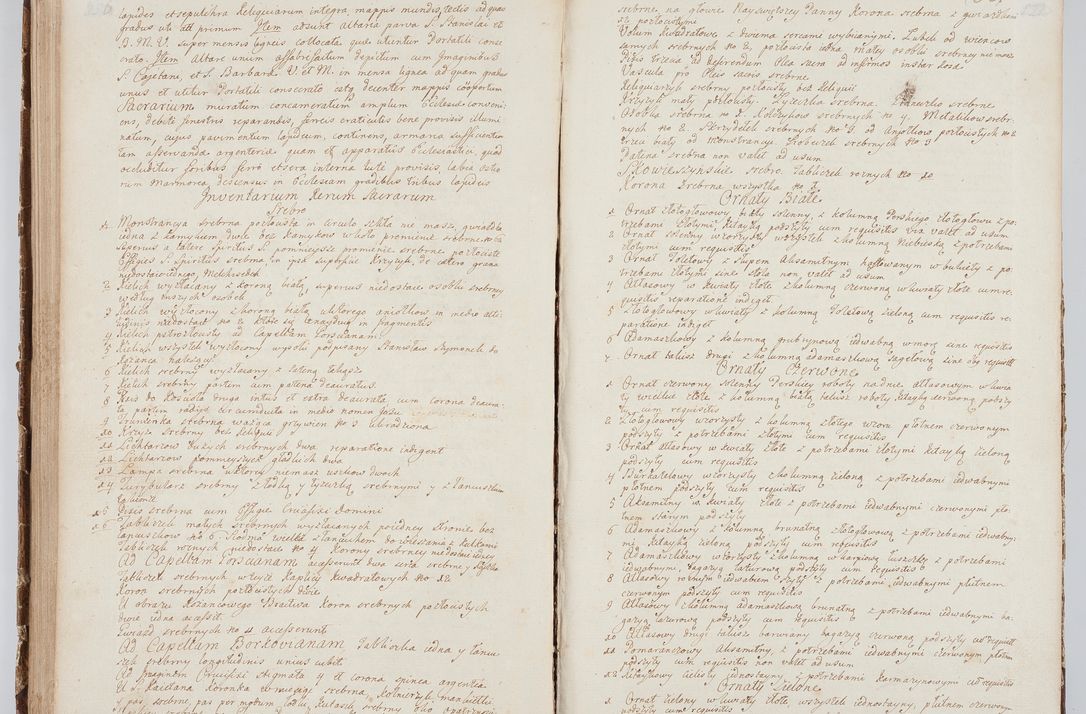 lapides et sepulchra Reliquiarum integra, mappis mundis, tectis ad quos
gradus uti ad primum Item adsunt Altaria parva S. Stanislai et
B. M. V. super mensis ligneis collocata quae utuntur Portatili conse
crato. Item Altare unum affabrefactum depictum cum Imaginibus
S. Cajetani, et S. Barbarae V. et M. in mensa lignea ad quam gradus
unus et utitur Portatili consecrato estq decenter mappis coopertum
Sacrarium muratum concameratum amplum Ecclesiae conveni
ens, debite fenestris reparandis, ferreis craticulis bene provisis illumi
natum, cujus pavimentum lapideum, continens, armaria sufficientem
tam asservanda argenteria quam et apparatus Ecclesiastici, quod
occluditur foribus ferro et sera interna tute provisis, labia ostio
rum Marmorea, descensus in Ecclesiam gradibus tribus lapideis
Inventarium Rerum Sacrarum
Srebro
1 Monstrancya srebrna pozłocista in circulo szkła nie masz, gwiazdka
iedna z kamyszkiem dwóch bez kamykow w koło promienie srebrne
superius a latere Spiritus S. pomnieysze promienie srebrne pozłociste
Effigies S. Spiritus srebrna, in ipsa superficie Krzyżyk, de cetero grana
niedostaie iednego, Melchisedech
2 Kielich wyzłacany z koroną białą superius niedostaie osobki srebrny
według inszych osobek
3 Kielich wyzłocony z koroną białą u którego aniołkow in medio alti
tudinis niedostaie No 2 które są
4 Kielich pstrozłocisty ad Capellam Torscianam
5 Kielich wszystek wyzłocony wysoki podpisany Stanisław Szymonek do
Rożanca należący
6 Kielich srebrny wyzłacany z pateną takąsz
7 Kielich srebrny partim cum patena deauratus
8 Puszka do Kościoła druga intus et extra deaurata cum corona deaura
ta partim radijs circumducta in medio nomen Jesu
9 Trunienka srebrna ważąca grzywien No 3 libradziona
10 Krzyż srebrny bez Religii
11 Lichtarzow dużych srebrnych dwa, reparatione indigent
12 Lichtarzow pomnieyszych gładkich dwa
13 Lampa srebrna w którey niemasz uszkow dwoch
14 Turybularz srebrny z łodką y łyżeczką srebrnymi y z łancuszkem
takiemisz
15 Pixis srebrna cum Effigie Crucifixi Domini
16 Tabliczek małych srebrnych wyzłacanych poiedney stronie bez
lancuszkow No 6 Siodma wielka z łancuchem do wieszania z kulkami
Tabliczek roznych niedostaie No 4 Korony srebrney niedostaie iedney
Ad Capellam Torscianam accesserunt dwa serca srebrne y
Tabliczek srebrnych w teyze Kaplicy kwadratowych No 12
Koron srebrnych pozłocistych dwie
A obrazu Rożancowego Bractwa Koron srebrnych pozłocistych
dwie iedna accessit
Gwiazd srebrnych No 4 accesserunt
Ad Capellam Borkovianam Tabliczka iedna y łancu
szek srebrny longitudinis unius cubiti
Ad Imaginem Crucifixi stigmata 4 et corona spinea argentea
U S. Kaietana Koronka et in zieie srebrna, kołnierzyk, Manceletki,
y pas srebrne, pas per motum, lodiu, kutasik srebrny
srebrne na głowie Nayswiętszey Panny Korona srebrna z gwiazdkami
ze pozłocistymi
Votum kwadratowe z dwiema sercami wybianymi. Tubek od wiencow
samych srebrnych No 2, pozłocista iedna małey osobki srebrney nie masz
Pixis trzecia ad deferendum Olea sacra ad infirmos instar losa
Vascula pro Oleis sacris srebrne
Reliquiarzyk srebrny pozłocisty bez Religii
Krzyżyk mały pozłocisty. Łyżeczka srebrna. Branszlio srebrne
Osobka srebrna No 2. Kolczykow srebrnych No 4. Metalikow srebr
nych No 2. Skrzydełek srebrnych No 9. od Aniołkow pozłocistych No 2
trzeci biały od monstrancyi. Srobeczek srebrnych No 3
Patena srebrna non valet ad usum
Skowieszynskie srebro. Tabliczek roznych No 20
Korona srebrna wszystka No 3
Ornaty Białe
1 Ornat złotogłowowy biały solenny, z kolumną Perskiego złotogłowu z po
trzebami złotymi, kitayką podszyty cum requisitis via valet ad usum
2 Ornat solenny wzorzysty w kolumną Niebieską z potrzebami
złotymi cum requisitis
3 Ornat Toletowy z słupem Aksamitnym haftowanym w bukiety z po
trzebami złotymi sine stola non valet ad usum
4 Atłasowy w kwiaty złote z kolumną czerwoną w kwiaty złote cum re
quisitis reparatione indiget
5 Złotogłowowy w kwiaty z kolumną Toletową zieloną cum requisitis re
paratione indiget
6 Adamaszkowy z kolumną grubrynową iedwabną w morę sine requisitis
7 Ornat takisz drugi z kolumną adamaszkową sagetową sine requisit
Ornaty Czerwone
1 Ornat czerwony solenny Perskiey roboty na dnie Atłasowym w kwia
ty wielkie złote z kolumną białą takisz roboty kitayką czerwoną podszy
ty cum requisitis
2 Złotogłowowy wzorzysty z kolumną złotego wzoru płotnem czerwonym
podszyty z potrzebami złotymi cum requisitis
3 Ornat Atłasowy w kwiaty złote z potrzebami złotymi kitayką zieloną
podszyty cum requisitis
4 Burkatelowy wzorzysty z kolumną zieloną z potrzebami iedwabnymi
płotnem podszyty cum requisitis
5 Aksamitny w kwiaty złote z potrzebami iedwabnymi czerwonymi pło
tnem starym podszyty
6 Adamaszkowy z kolumną brunatną złotogłowową z potrzebami iedwabny
mi kitayką zieloną podszyty cum requisitis
7 Adamaszkowy wzorzysty z kolumną w karpiową łuszczkę z potrzebami
iedwabnymi, bagazyą lazurową podszyty cum requisitis
8 Atłasowy rożnym iedwabiem szyty z potrzebami iedwabnymi płotnem
czerwonym podszyty cum requisitis
9 Atłasowy z kolumną adamaszkową brunatną z potrzebami iedwabnymi ba
gazyą lazurową podszyty cum requisitis
10 Atłasowy drugi takisz barwiany bagazyą czerwoną podszyty cum requisit
11 Pomaranczowy Aksamitny, z potrzebami iedwabnymi czerwonym płotnem
podszyty cum requisitis non valet ad usum
12 Kitaykowy cielisty iednostayny z potrzebami karmazynowymi cum requisitis
Ornaty Zielone
1 Ornat zielony w kwiaty złote, wszystek iednostayny, płotnem czerwonym
podszyty cum requisitis